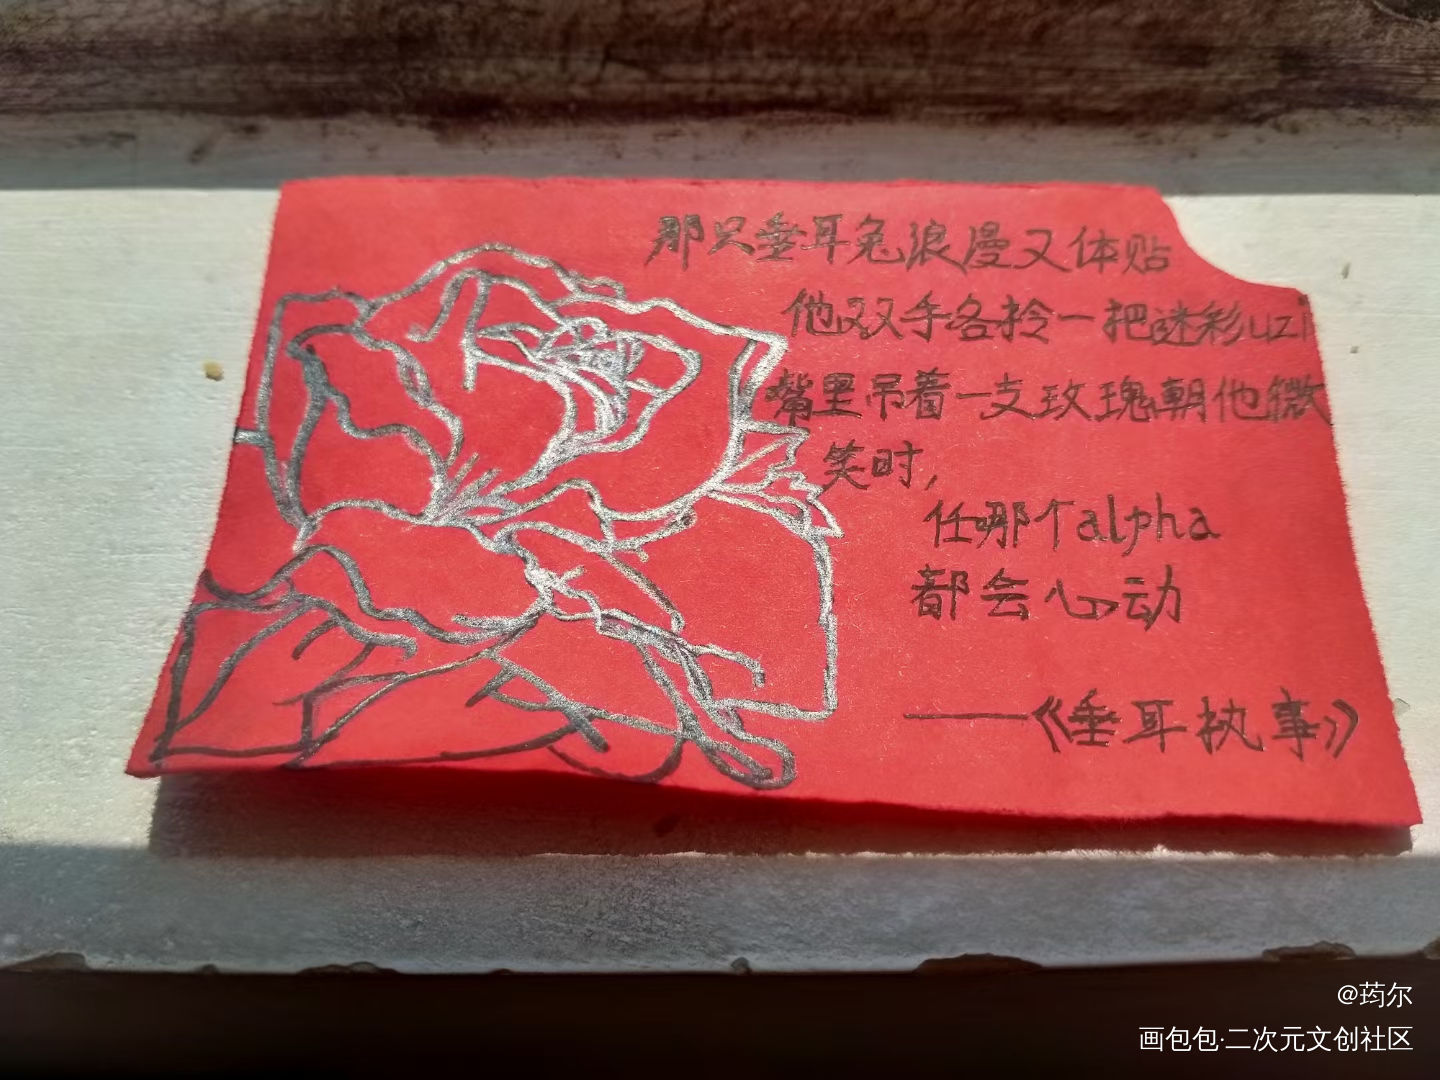 那只垂耳兔浪漫又体贴
他双手各拎一把迷彩uzi
嘴里吊着一支玫瑰朝他微
笑时,
任哪个alpha
都会心动
——《垂耳执事》
@药尔
画包包·二次元文创社区